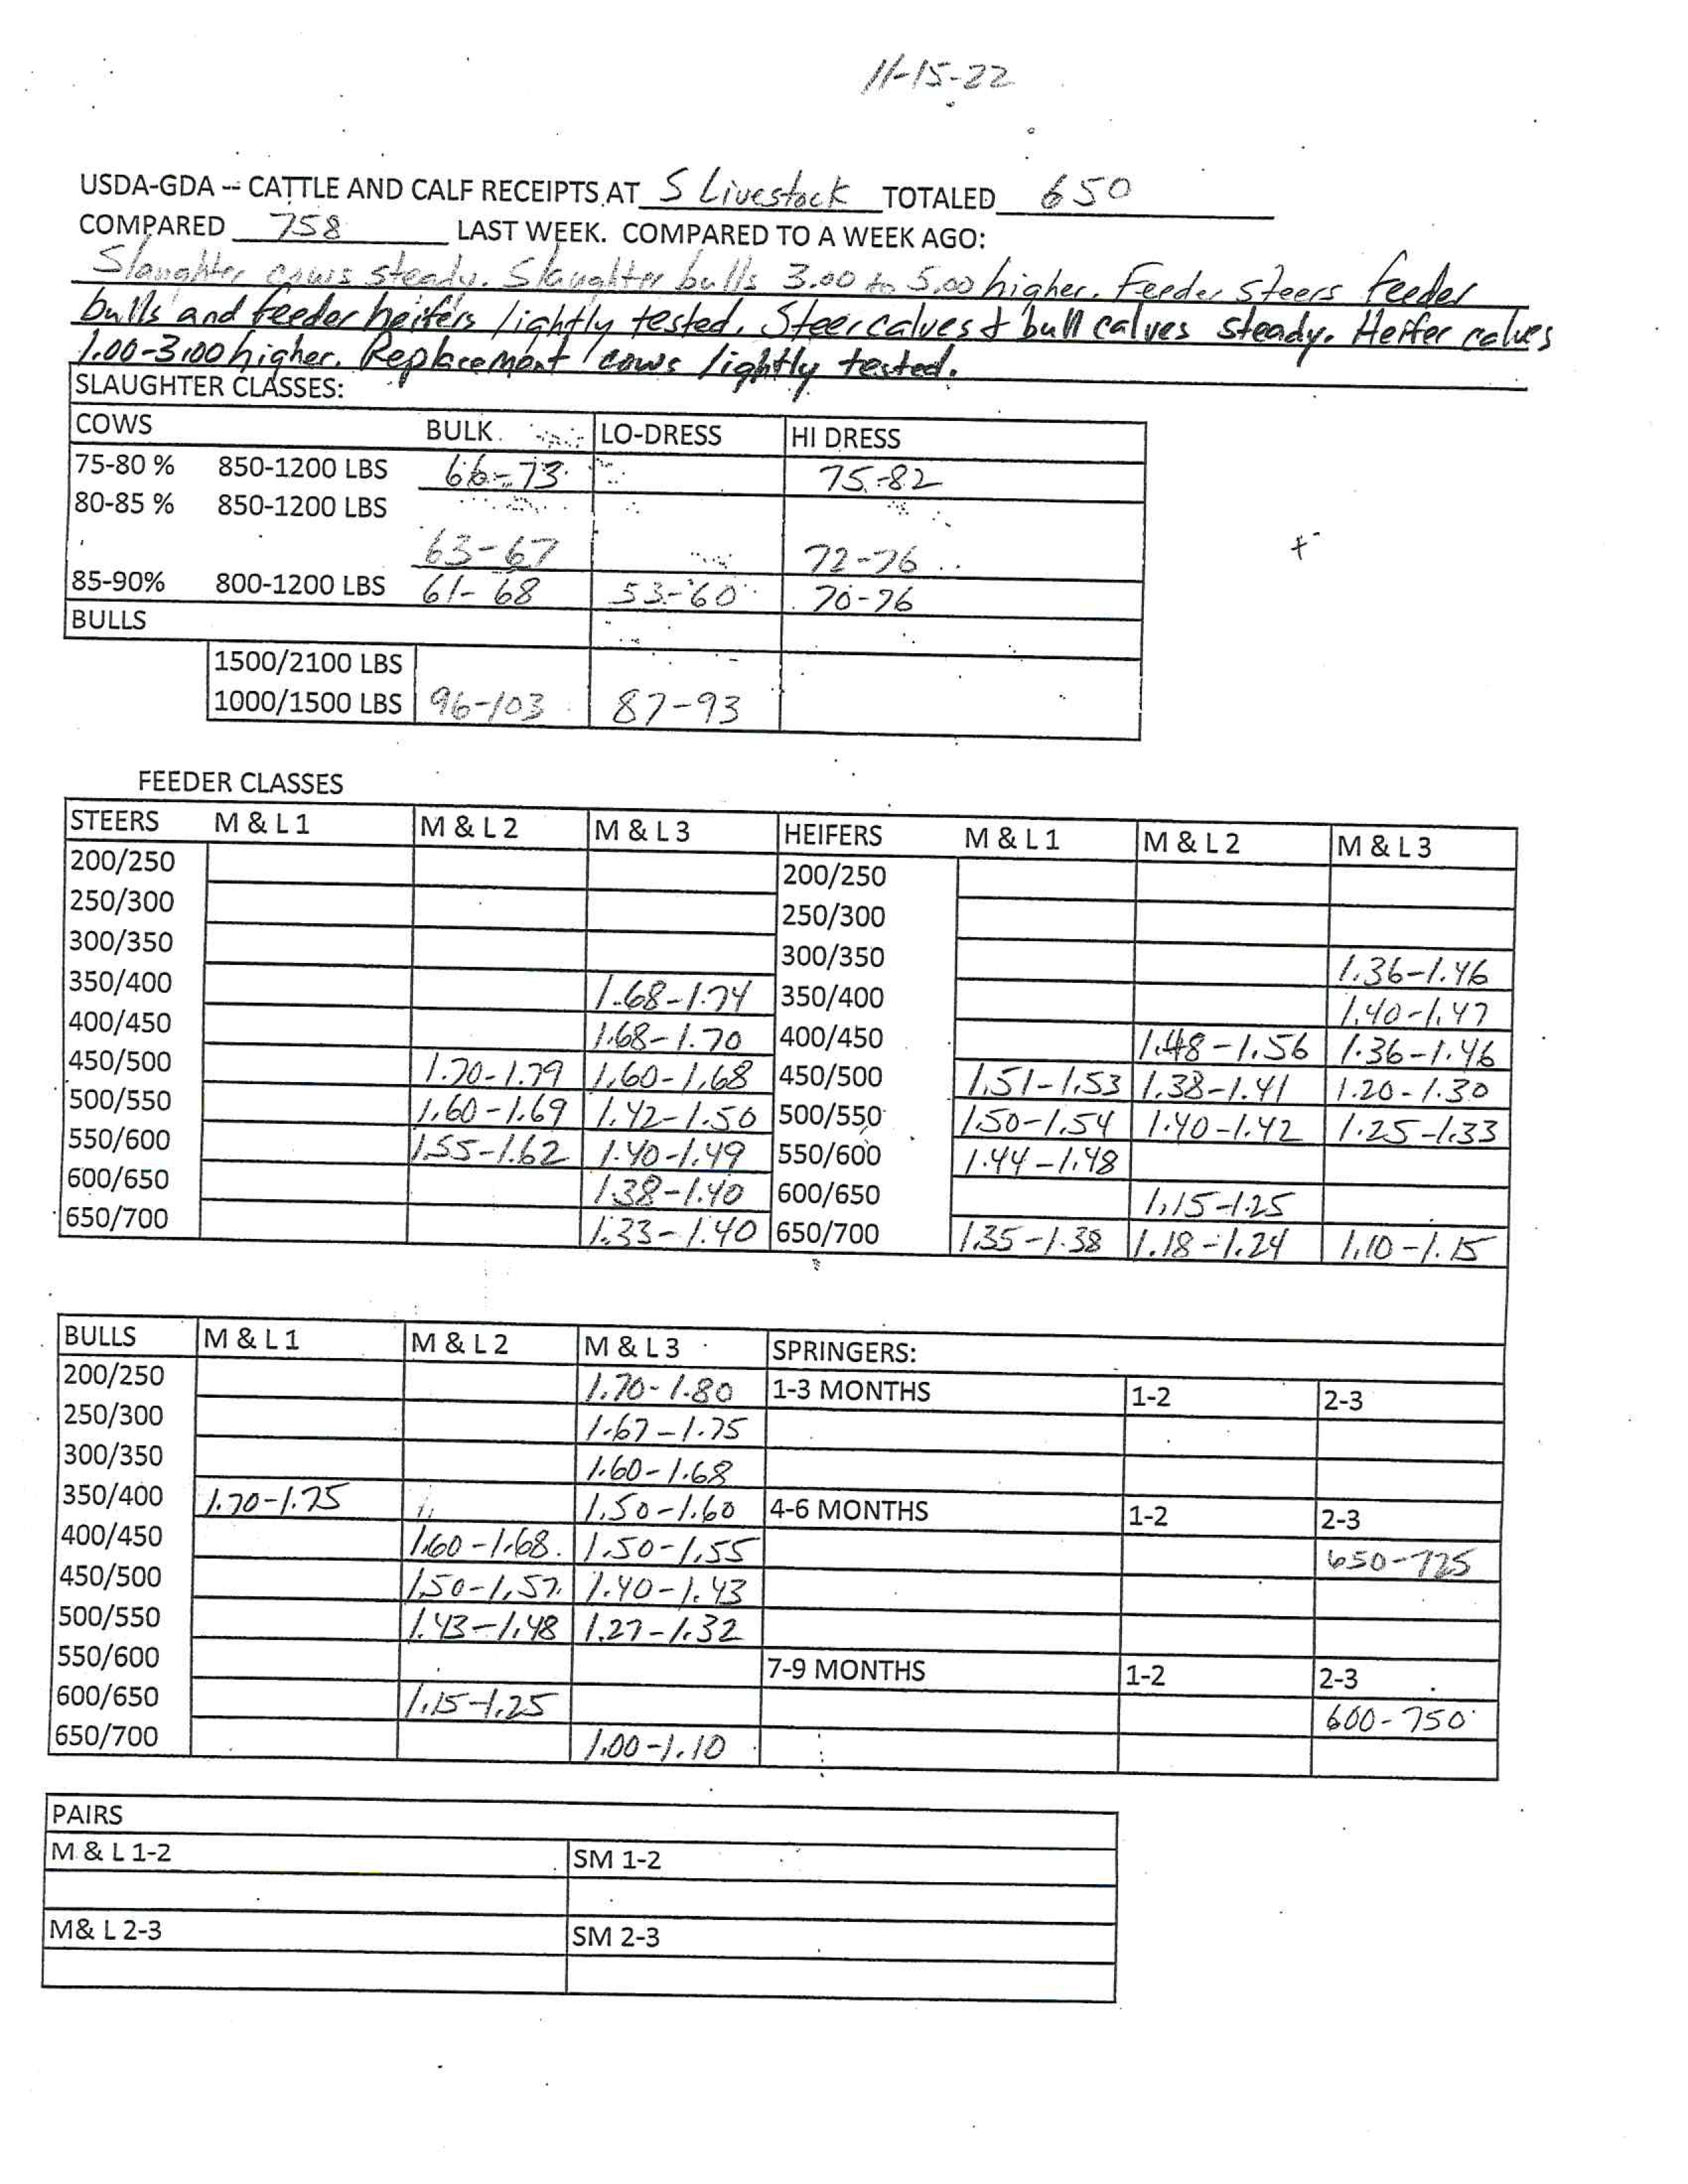 11-15-22
USDA-GDA -- CATTLE AND CALF RECEIPTS AT S Livestock TOTALED 650
COMPARED 758 LAST WEEK. COMPARED TO A WEEK AGO:
Slaughter cows steady. Slaughter bulls 3.00 to 5.00 higher. Feeder Steers feeder
bulls and feeder heifers lightly tested. Steer calves & bull calves steady. Heifer calves
1.00-3.00 higher. Replacement cows lightly tested.
SLAUGHTER CLASSES:
COWS BULK LO-DRESS HI DRESS
75-80 % 850-1200 LBS 66-73 75-82
80-85 % 850-1200 LBS
63-67 72-76
85-90% 800-1200 LBS 61-68 53-60 70-76
BULLS
1500/2100 LBS
1000/1500 LBS 96-103 87-93
FEEDER CLASSES
STEERS M & L 1 M & L 2 M & L 3 HEIFERS M & L 1 M & L 2 M & L 3
200/250 200/250
250/300 250/300
300/350 300/350 1.36-1.46
350/400 1.68-1.74 350/400 1.40-1.47
400/450 1.68-1.70 400/450 1.48-1.56 1.36-1.46
450/500 1.70-1.79 1.60-1.68 450/500 1.51-1.53 1.38-1.41 1.20-1.30
500/550 1.60-1.69 1.42-1.50 500/550 1.50-1.54 1.40-1.42 1.25-1.33
550/600 1.55-1.62 1.40-1.49 550/600 1.44-1.48
600/650 1.38-1.40 600/650 1.15-1.25
650/700 1.33-1.40 650/700 1.35-1.38 1.18-1.24 1.10-1.15
BULLS M & L 1 M & L 2 M & L 3 SPRINGERS:
200/250 1.70-1.80 1-3 MONTHS 1-2 2-3
250/300 1.67-1.75
300/350 1.60-1.68
350/400 1.70-1.75 1.50-1.60 4-6 MONTHS 1-2 2-3
400/450 1.60-1.68 1.50-1.55 650-725
450/500 1.50-1.57 1.40-1.43
500/550 1.43-1.48 1.27-1.32
550/600 7-9 MONTHS 1-2 2-3
600/650 1.15-1.25 600-750
650/700 1.00-1.10
PAIRS
M & L 1-2 SM 1-2
M& L 2-3 SM 2-3